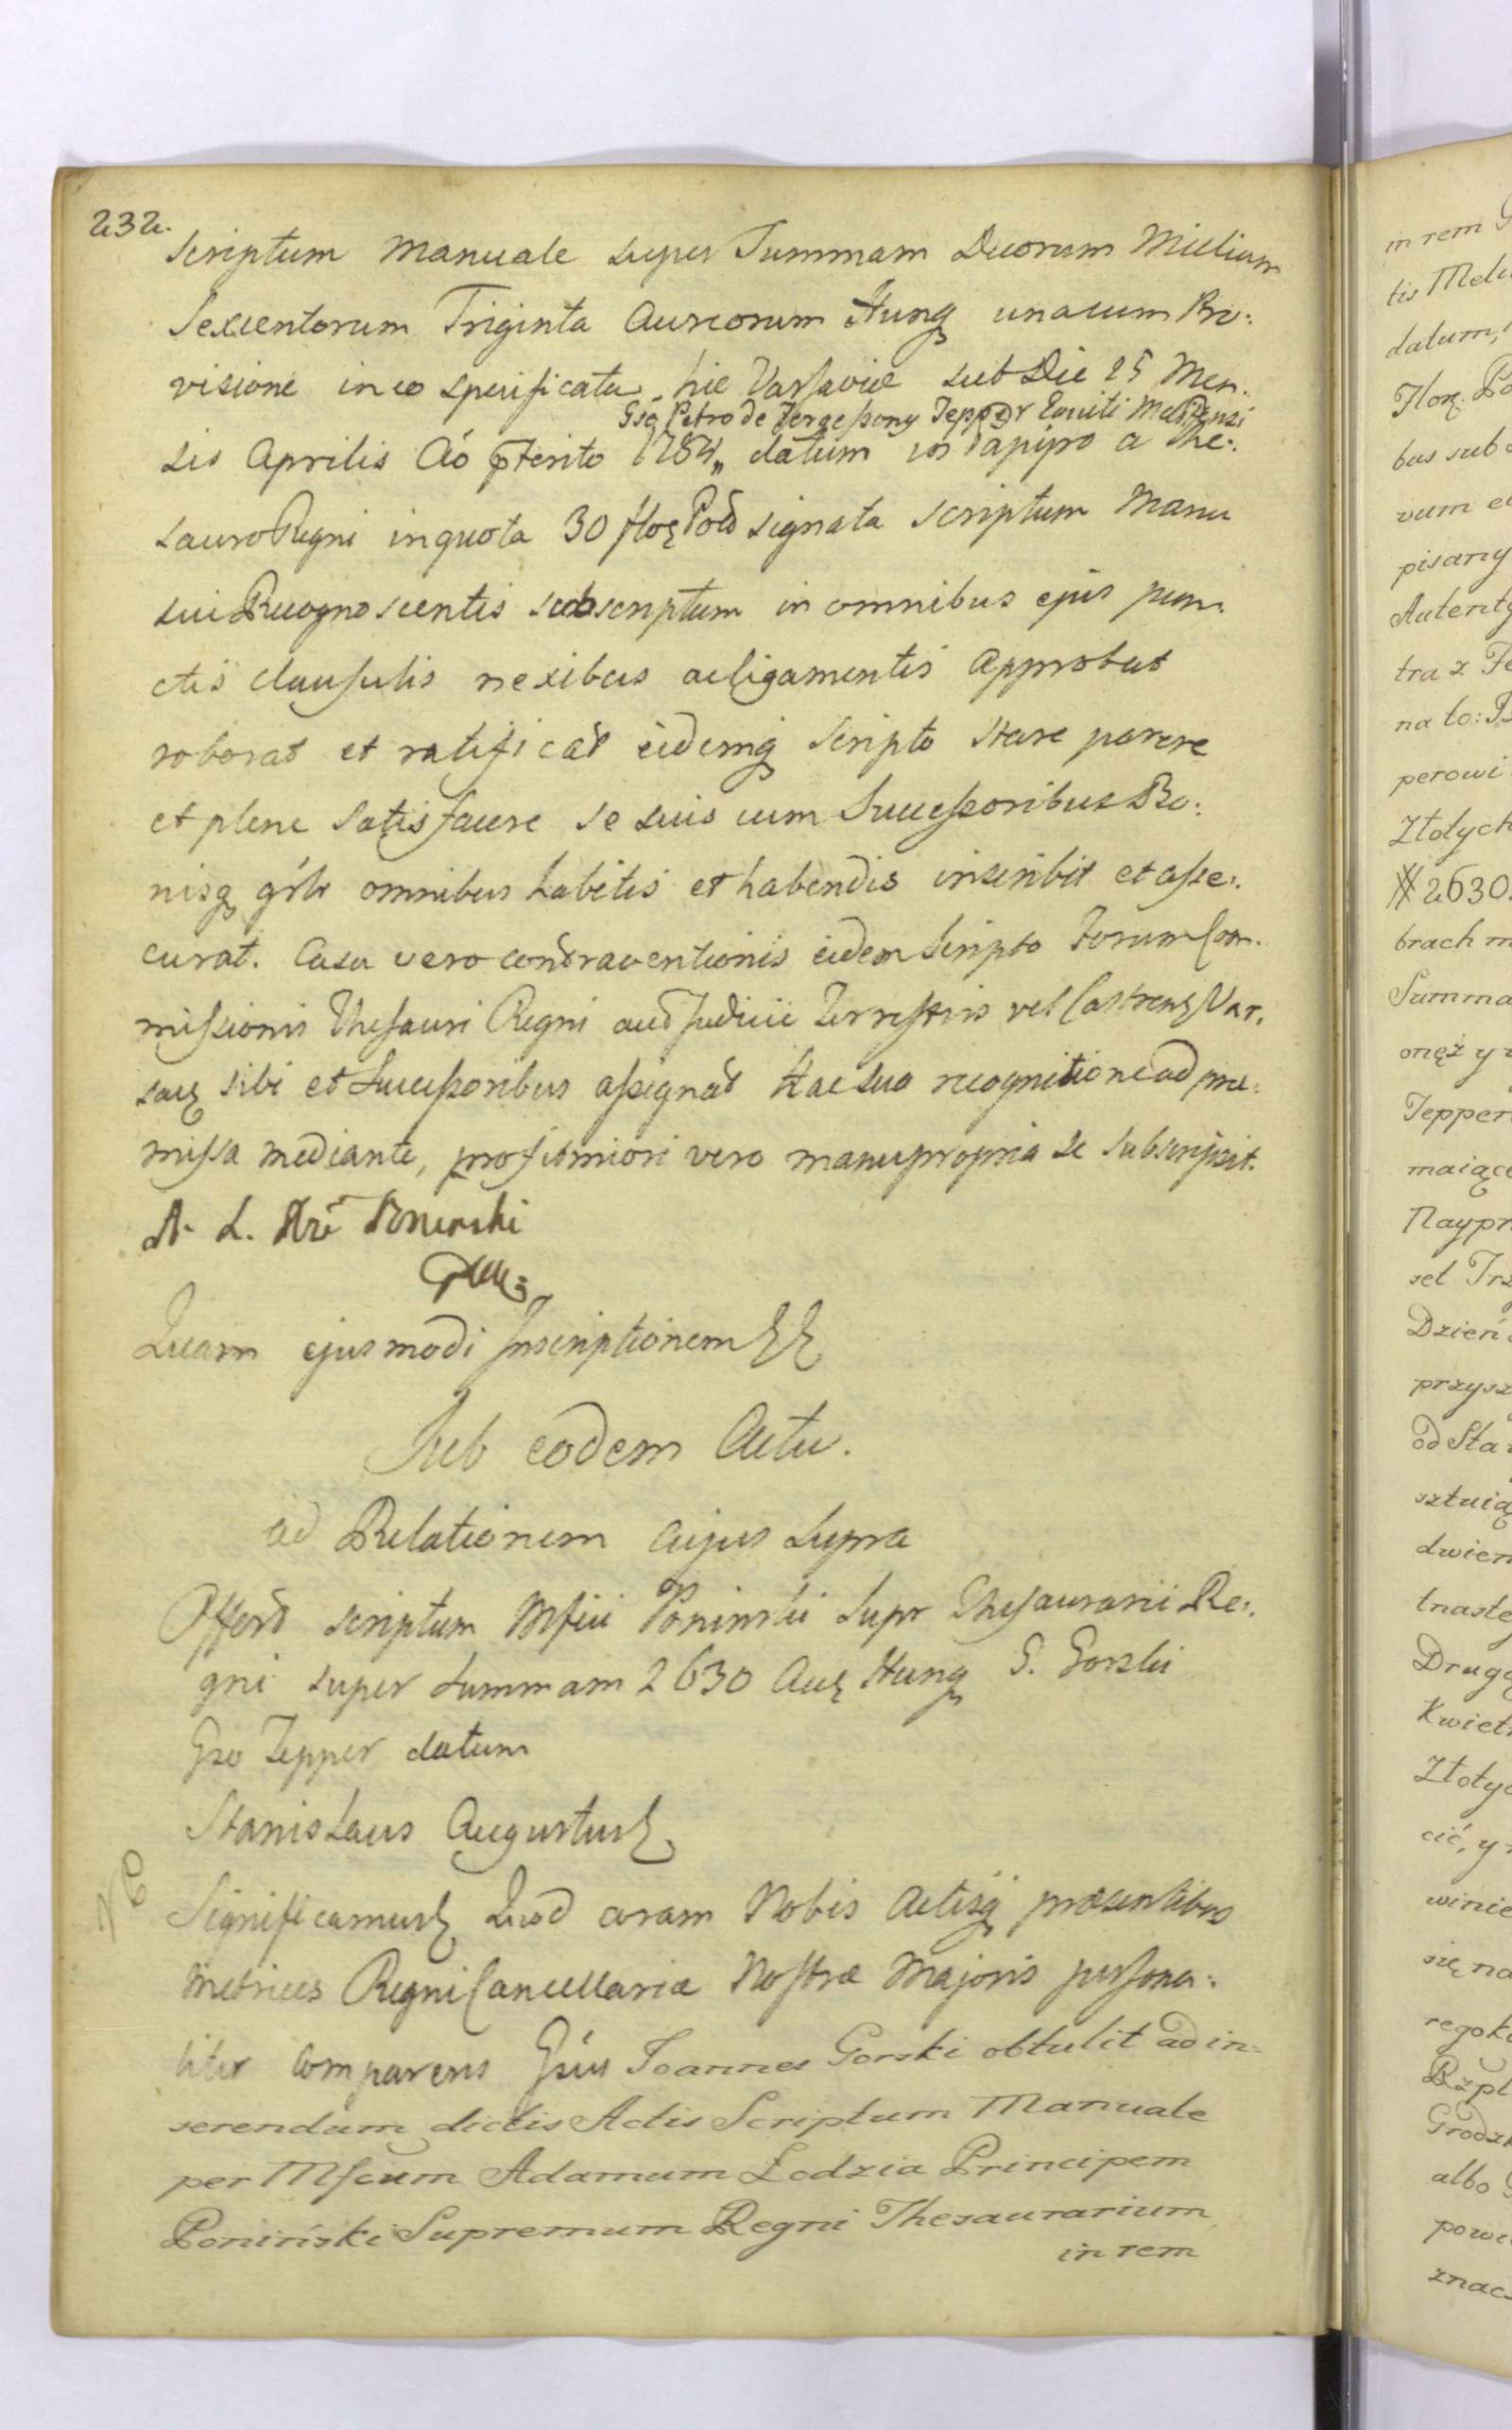 232.
Scriptum Manuale super Summam Duorum Millium
Sexcentorum Triginta Aureorum Hungq unacum Pro:
visione in eo specificata hic Varsaviæ sub Die 25 Men:
Gso Petro de Fergessony Tepper Equiti Meltensi
sis Aprilis Aó pterito 1784,, datum in Papijro a The:
sauro Regni in quota 30 floq Pold signata scriptum Manu
sui Recognoscentis subscriptum in omnibus ejus pun:
ctis clausulis nexibus ac ligamentis Approbat
roborat et ratificat eidemq Scripto stare parere
et plene Satisfacere se suis cum Successoribus Bo:
nisq gńlr omnibus habitis et habendis inscribit et asse:
curat. Casu vero contraventionis eidem Scripto Forum Com:
missionis Thesauri Regni aut Judicii Terrestris vel Castrens Var:
saq sibi et Successoribus assignat Hac sua recognitione ad præ:
missa mediante, pro firmiori vero manu propria se subscripsit.
A. L. Poninski
Quam ejusmodi Inscriptionem
Sub eodem Actu.
ad Relationem cujus supra
Offert scriptum Mfici Poninski Supr Thesaurarii Re:
gni super Summam 2630 Auq Hungq G. Gorski
Gso Tepper datum
Stanislaus Augustus
Significamus Quod coram Nobis Actisq præsentibus
Metrices Regni Cancellariæ Nostræ Majoris persona:
liter Comparens Gsus Joannes Gorski obtulit ad in:
serendum dictis Actis Scriptum Manuale
per Mfcum Adamum Łodzia Principem
Poniński Supremum Regni Thesaurarium
in rem
in rem
tis
datum,
Floq. Po
bus sub
vum
pisany
Autenty
tra z Fe
na to:
perowi
Złotych
2630.
brach m
Summa
onęż y
Tepper
maiące
Naypr
set Trz
Dzień
przysz
od Sta
sztuią
dwien
tnaste
Drug
Kwiet
Złoty
cić, y
winie
się na
regok
Rzpl
Grodz
albo
pow
znac